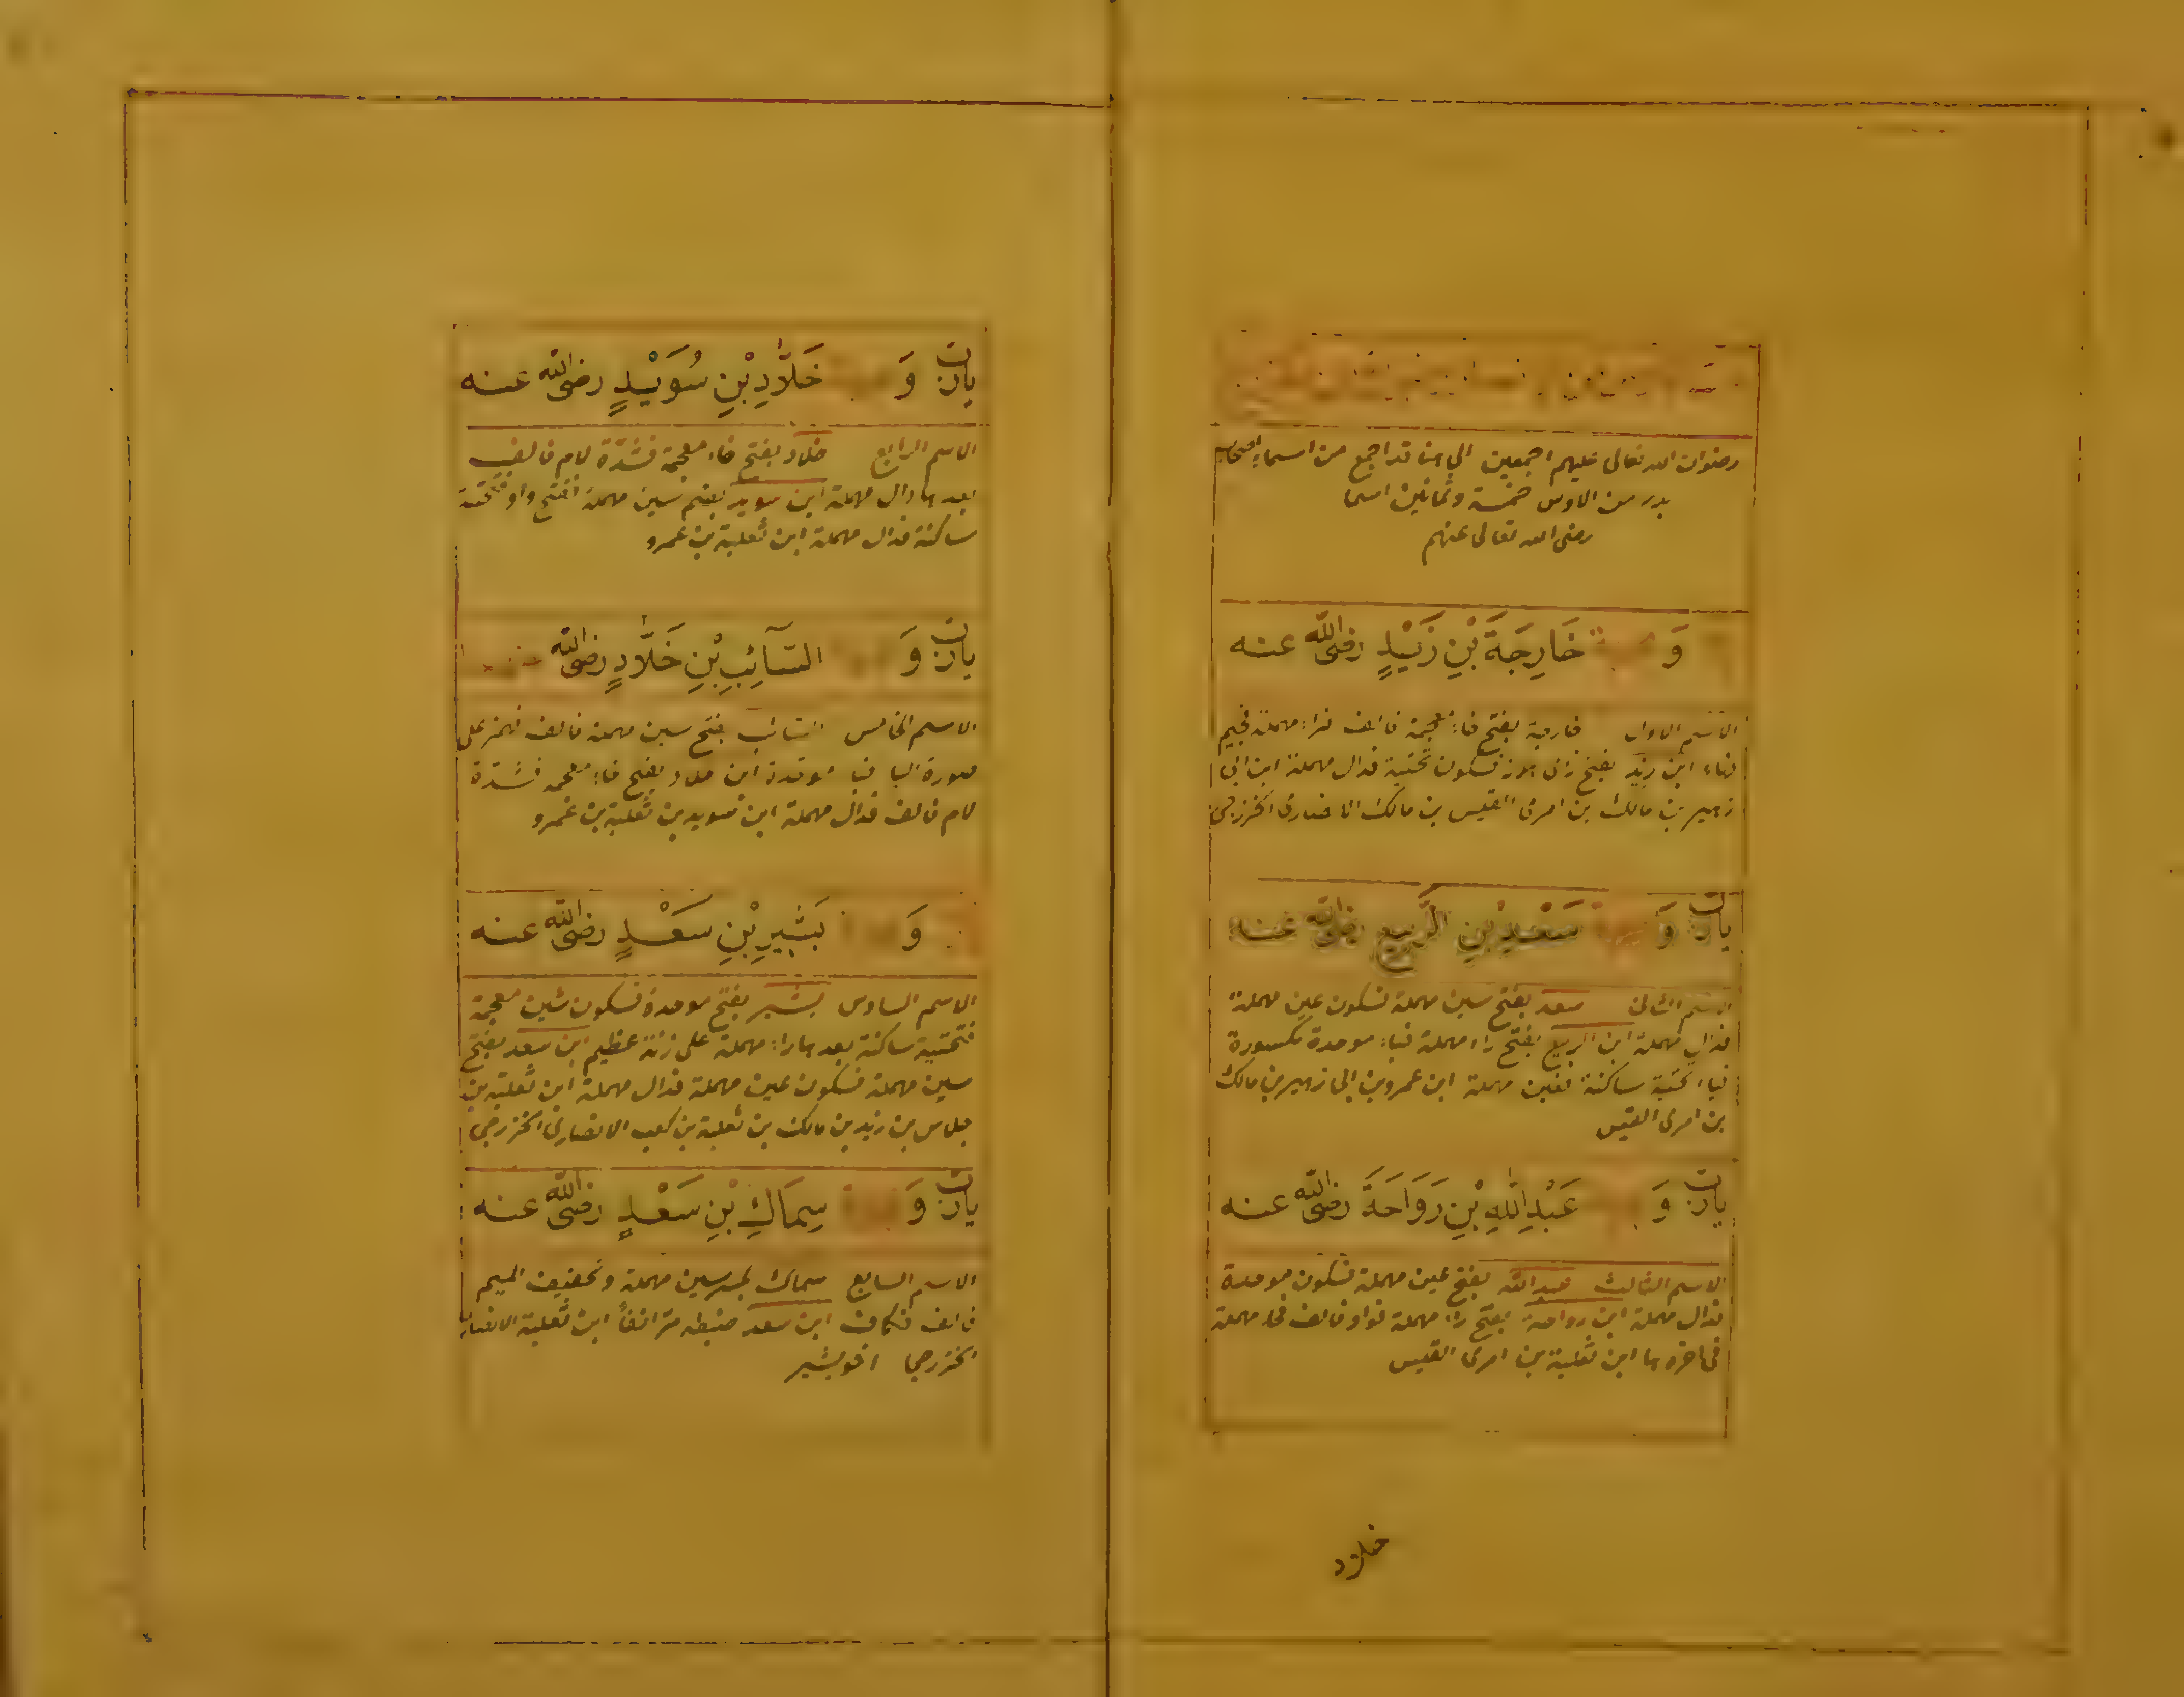 رضوان الله تعالى عليهم اجمعين الى هنا قد اجمع من اسماء اصحاب
بدر من الاوس خمسة وثمانين اسما
رضى الله تعالى عنهم
وَ خَارِجَةَ بْنِ زَيْدٍ رضى الله عنه
الاسم الاول خارجة بفتح خاء معجمة فالف فراء مهملة فجيم
فهاء ابن زيد بفتح زاى هوز فسكون تحتية فدال مهملة ابن ابى
زهير بن مالك بن امرئ القيس بن مالك الانصارى الخزرجى
يارن وَ سَعْدِ بْنِ الرَّبِيعِ رضى الله عنه
الاسم الثانى سعد بفتح سين مهملة فسكون عين مهملة
فدال مهملة ابن الربيع بفتح راء مهملة فباء موحدة مكسورة
فياء تحتية ساكنة فعين مهملة ابن عمرو بن ابى زهير بن مالك
بن امرئ القيس
يارن وَ عَبْدِ اللّٰهِ بْنِ رَوَاحَةَ رضى الله عنه
الاسم الثالث عبد الله بفتح عين مهملة فسكون موحدة
فدال مهملة ابن رواحة بفتح راء مهملة فواو فالف فحاء مهملة
فى اخره ها ابن ثعلبة بن امرئ القيس
خلاد
يارن وَ خَلَّادِ بْنِ سُوَيْدٍ رضى الله عنه
الاسم الرابع خلاد بفتح خاء معجمة فشدة لام فالف
بعدها دال مهملة ابن سويد بضم سين مهملة ففتح واو فتحتية
ساكنة فدال مهملة ابن ثعلبة بن عمرو
يارن وَ السَّآئِبِ بْنِ خَلَّادٍ رضى الله
الاسم الخامس السائب بفتح سين مهملة فالف فهمز على
صورة اليا فبا موحدة ابن خلاد بفتح خاء معجمة فشدة
لام فالف فدال مهملة ابن سويد بن ثعلبة بن عمرو
وَ بَشِيرِ بْنِ سَعْدٍ رضى الله عنه
الاسم السادس بشير بفتح موحدة فسكون شين معجمة
فتحتية ساكنة بعدها راء مهملة على زنة عظيم ابن سعد بفتح
سين مهملة فسكون عين مهملة فدال مهملة ابن ثعلبة بن
جلاس بن زيد بن مالك بن ثعلبة بن كعب الانصارى الخزرجى
يارن وَ سِمَاكِ بْنِ سَعْدٍ رضى الله عنه
الاسم السابع سماك بكسر سين مهملة وتخفيف الميم
فالف فكاف ابن سعد ضبطه مر انفا ابن ثعلبة الانصارى
الخزرجى اخو بشير